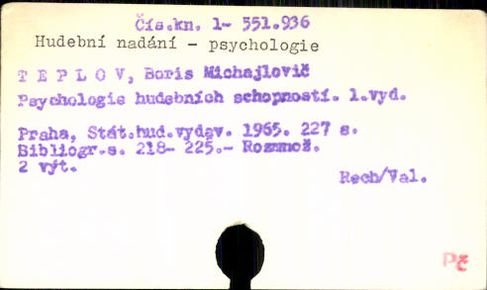 Čís.kn. 1- 551.936
Hudební nadání - psychologie
T E P L O V, Boris Michajlovič
Psychologie hudebních schopností. 1.vyd.
Praha, Stát.hud.vydav. 1965. 227 s.
Bibliogr.s. 218- 225.- Rozmnož.
2 výt.
Rech/Val.
Pč